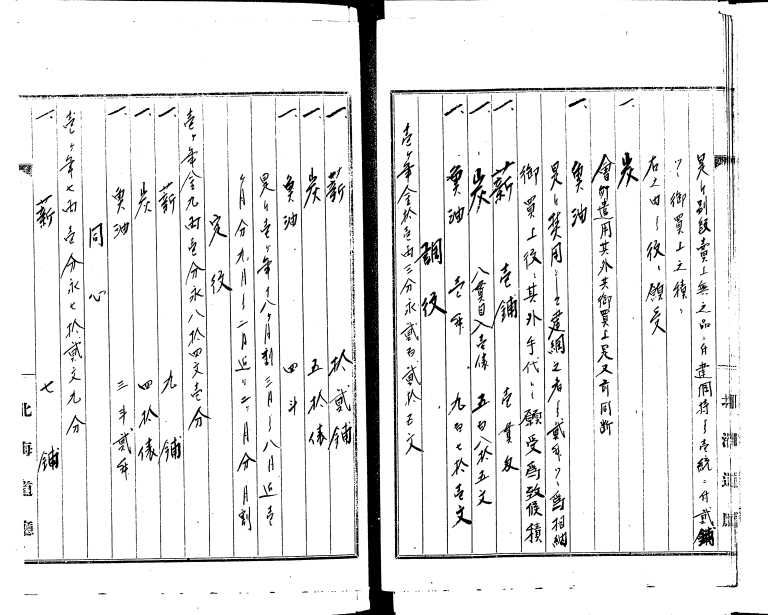 是ハ別段売上無之品ニ付建網持ヨリ壱統ニ付貳鋪
ツヽ御買上之積リ
右之由ヨリ役々願受
一、炭
会所遣用其外共御買上足又前同断
一、魚油
是ハ費用ニして建網之者ヨリ貳升ツヽ為相納
御買上役々其外手代ニ願受為致候積
一、薪 壱鋪 壱貫文
一、炭 八貫目入壱俵 五百八拾五文
一、魚油 壱升 九百七拾壱文
調役
壱ヶ年金拾壱両三分永貳百貳拾五文
一、薪 拾貳鋪
一、炭 五拾俵
一、魚油 四斗
是ハ壱ヶ年ヲ八ヶ月割三月ヨリ八月迄壱
ヶ月分九月ヨリ二月迄ニヶ月分月割
定役
壱ヶ年金九両壱分永八拾四文壱分
一、薪 九鋪
一、炭 四拾俵
一、魚油 三斗貳升
同心
壱ヶ年七両壱分永七拾貳文九分
一、薪 七鋪
北海道廳